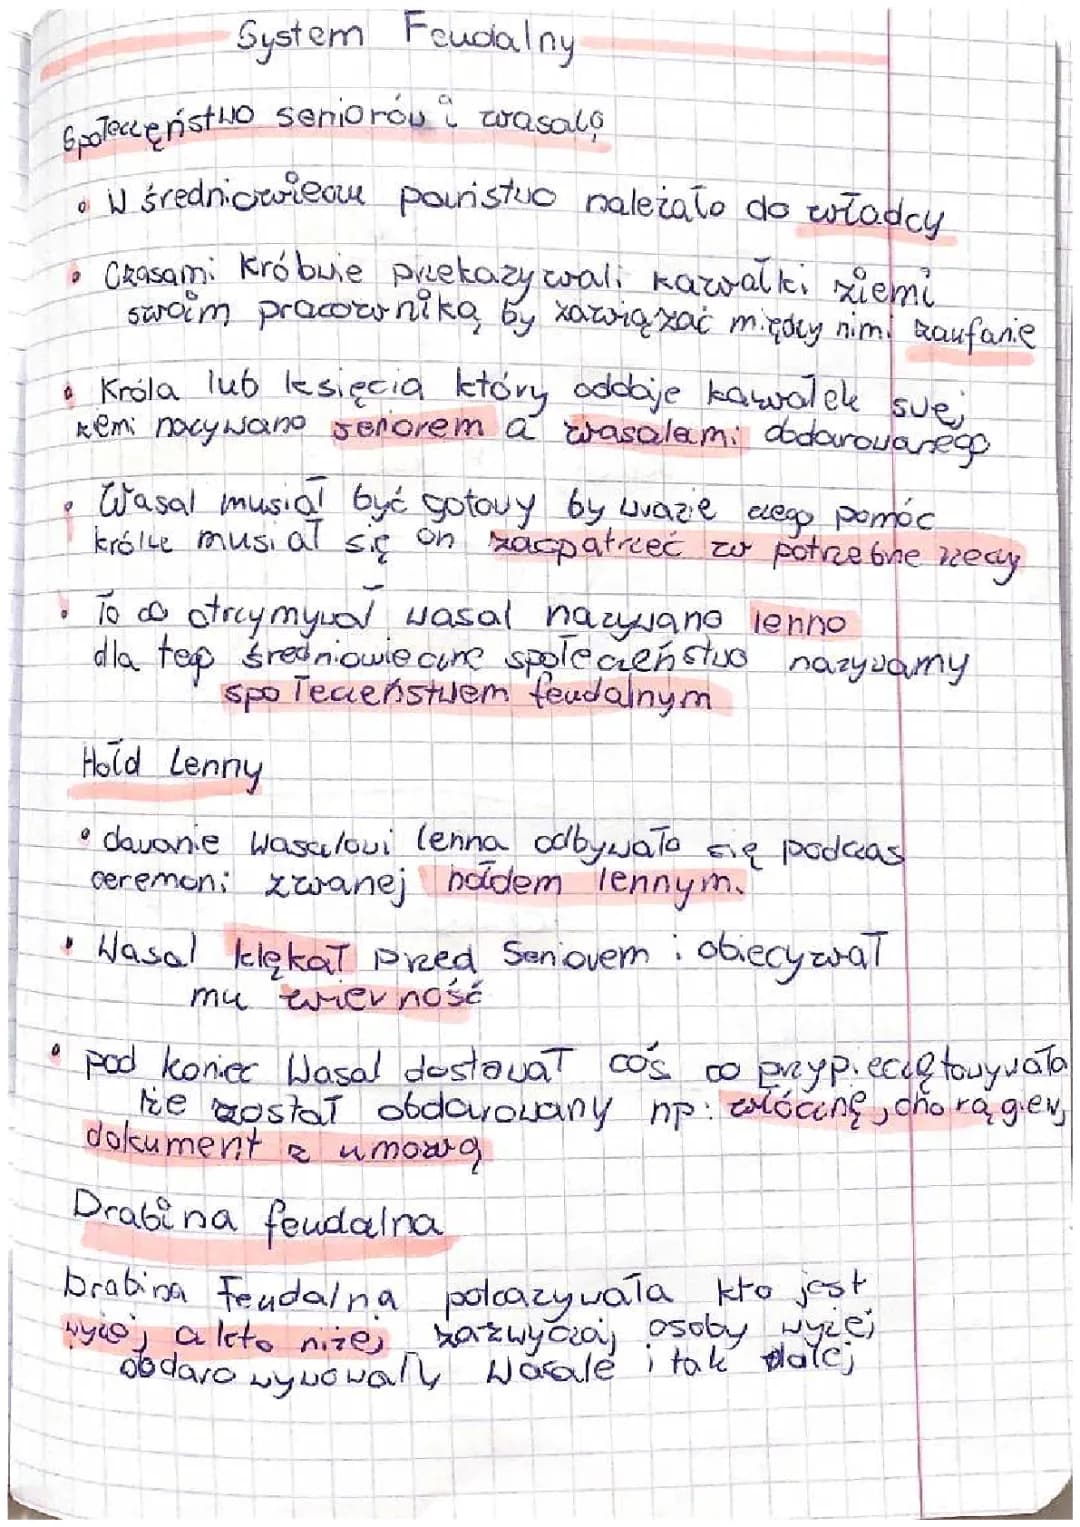 System Feudalny
Społeczeństwo seniorów i wasalą
W średniowieczu państwo należało do władcy
Czasami Królowie przekazywali kawałki ziemi
swoim pracowniką by zawiązać między nimi zaufanie
Króla lub księcia który oddaje kawałek swej
ziemi nazywano seniorem a wasalami obdarowanego
Wasal musiał być gotowy by wrazie czego pomóc
królce musiał się on zaopatrzeć w potrzebne rzeczy
To co otrzymywał wasal nazywano lenno
dla tego średniowieczne społeczeństwo nazywamy
społeczeństwem feudalnym
Hołd Lenny
dawanie wasalowi lenna odbywało się podczas
ceremoni zwanej hołdem lennym.
Wasal klękał przed Seniorem i obiecywał
mu wierność
pod koniec Wasal dostawał coś co przypieczętowywała
że został obdarowany np: włócznę, chorągiew,
dokument z umową
Drabina feudalna
Drabina Feudalna pokazywała kto jest
wyżej a kto niżej zazwyczaj osoby wyżej
obdarowywowały Wasale i tak dalej